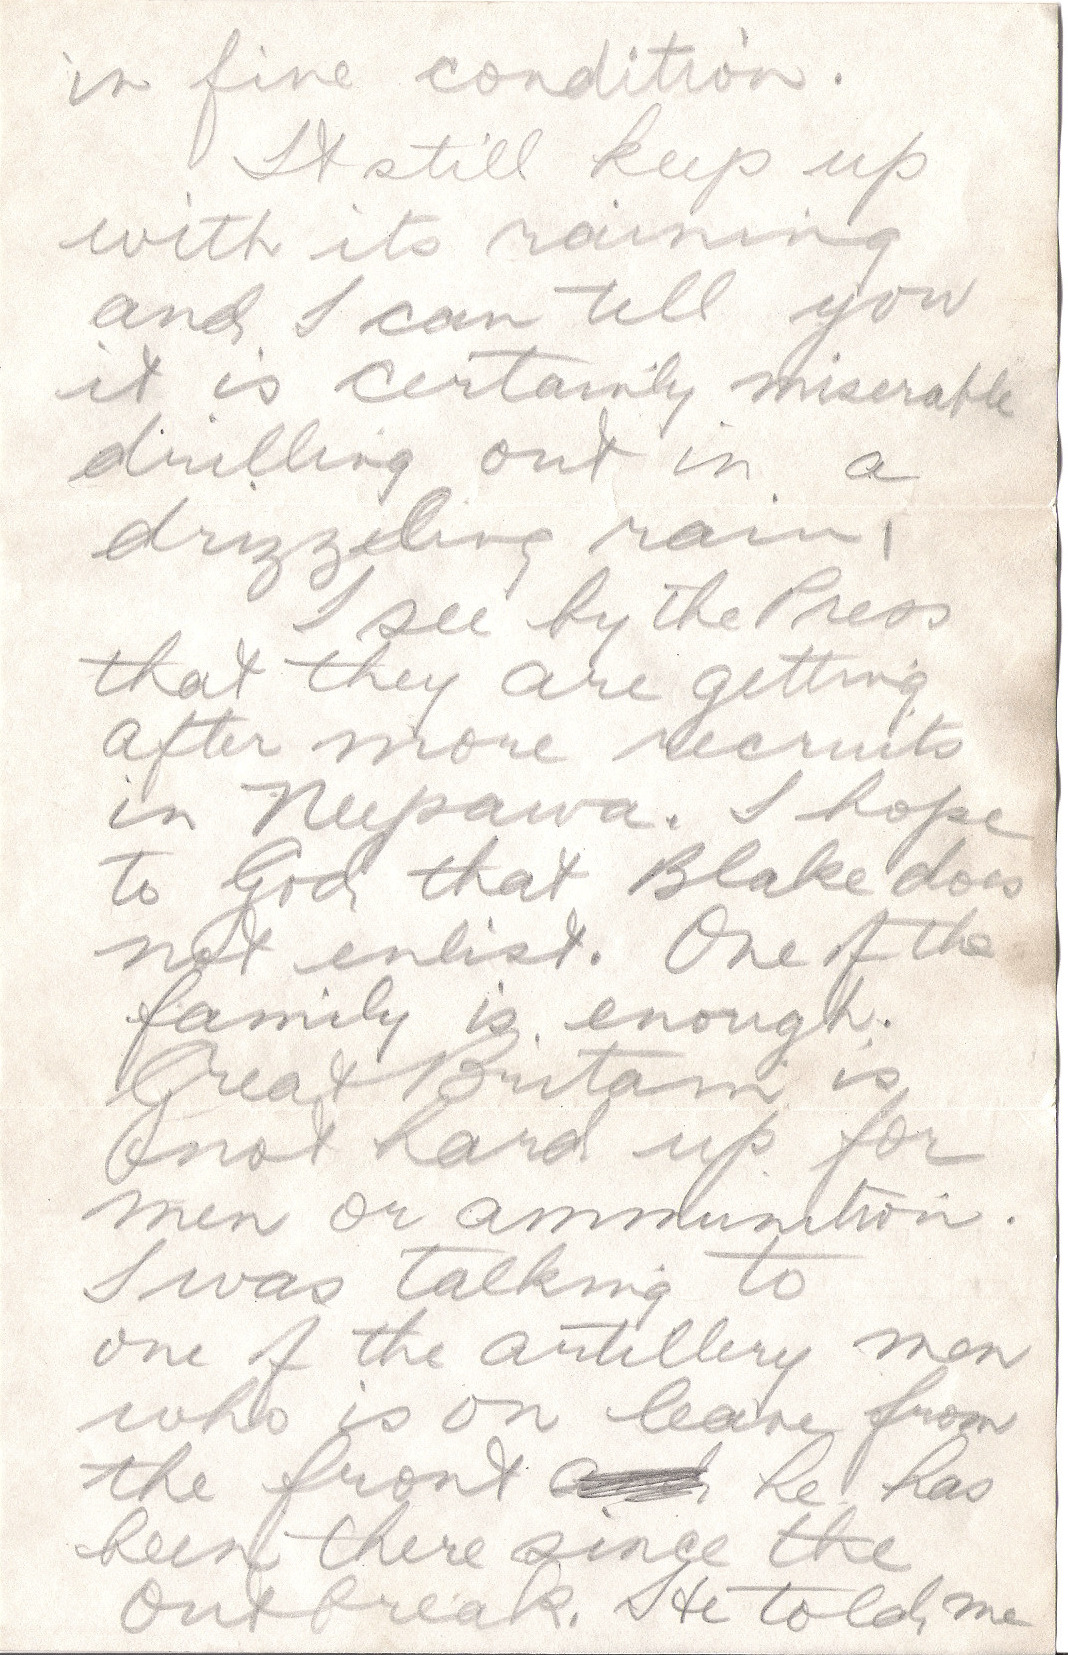 in fine condition.
It still keep up
with its raining
and I can tell you
it is certainly miserable
drilling out in a
drizzeling rain,
I see by the Press
that they are getting
after more recruits
in Neepawa. I hope
to God that Blake does
not enlist. One of the
family is enough.
Great Britain is
not hard up for
men or ammunition.
I was talking to
one of the artillery men
who is on leave from
the front he has
been there since the
outbreak. He told me